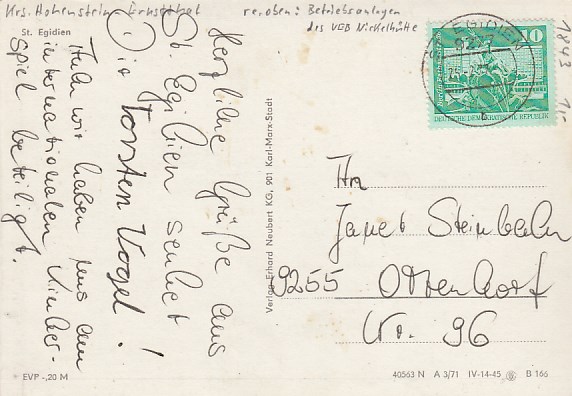 Krs. Hohenstein-Ernstthal
re. oben: Betriebsanlagen
des VEB Nickelhütte
St. Egidien
Herzliche Grüße aus
St. Egidien sendet
Dir Torsten Vogel!
Auch wir haben uns am
internationalen Kinder-
spiel beteiligt.
EVP -,20 M
Verlag Erhard Neubert KG, 901 Karl-Marx-Stadt
ST. EGIDIEN
9273
10
DEUTSCHE DEMOKRATISCHE REPUBLIK
1843
An
Janet Steinbach
9255 Ottendorf
Nr. 96
40563 N A 3/71 IV-14-45 B 166